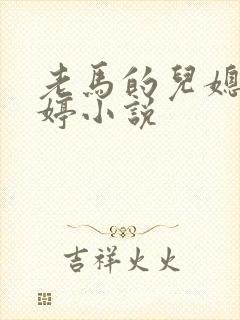 老馬的兒媳
婷小説
吉祥火火